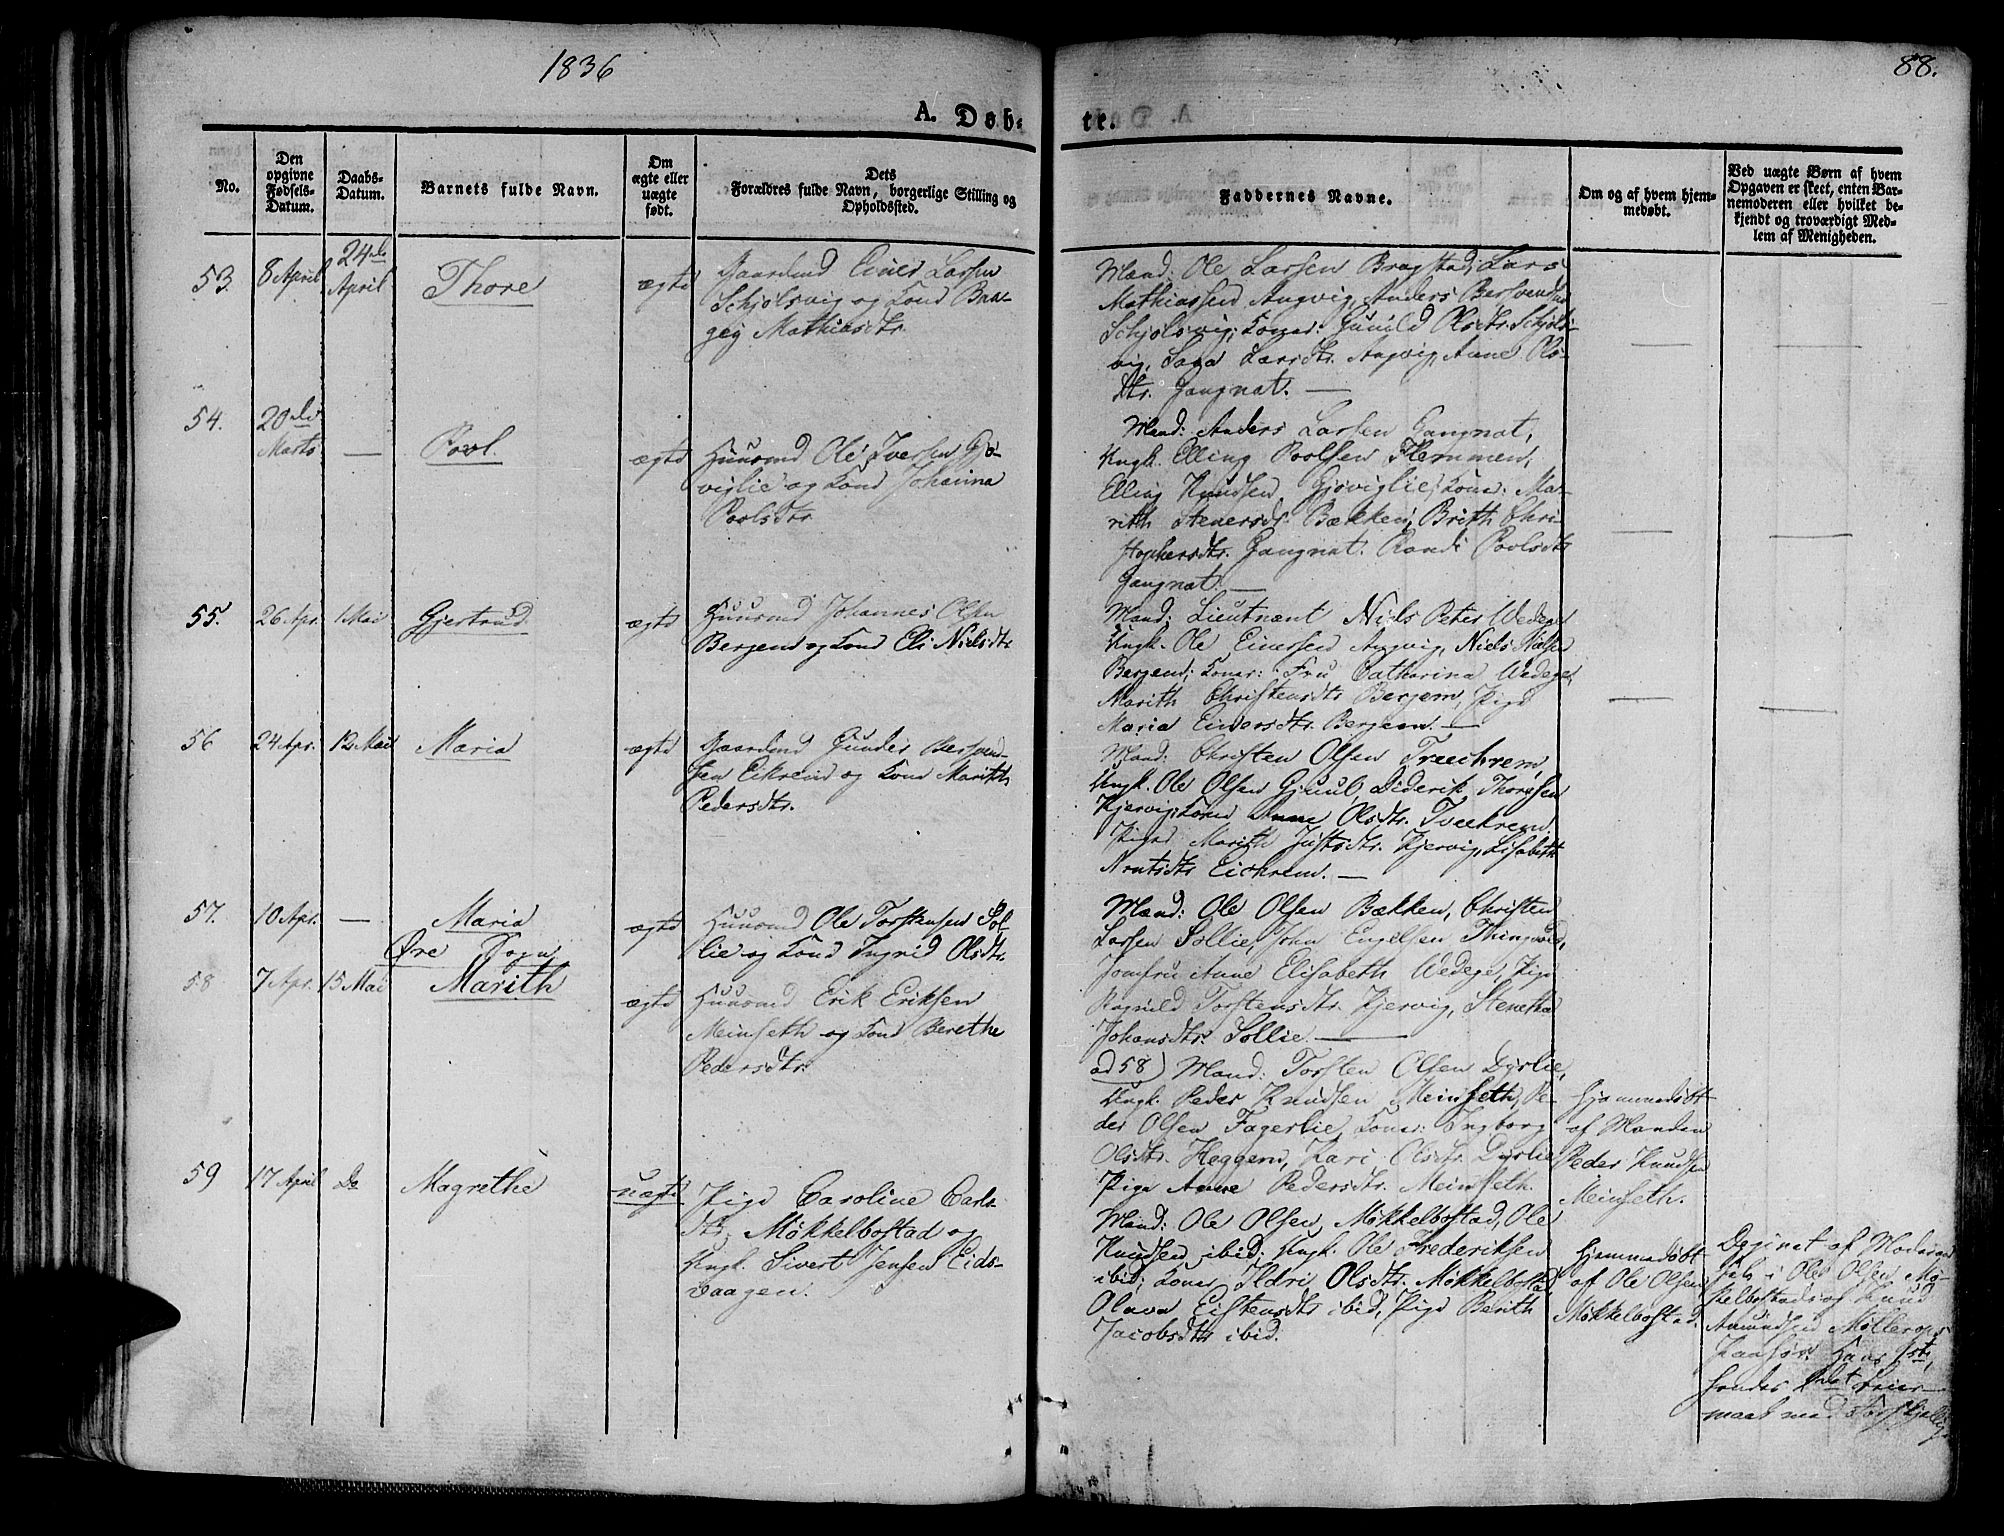 1836
88.
A. Døb-
te.
No.
Den opgivne Fødsels-Datum.
Daabs-Datum.
Barnets fulde Navn.
Om ægte eller uægte født.
Dets Forældres fulde Navn, borgerlige Stilling og Opholdssted.
Faddernes Navne.
Om og af hvem hjemmedøbt.
Ved uægte Børn af hvem
Opgaven er skeet, enten Bar-
nemoderen eller hvilket be-
kjendt og troværdigt Med-
lem af Menigheden.
53. 8 April 24de April Thore ægte
Gaardmd Einer Larsen
Schjølsvig og Kone
Mathiasdtr.
Mænd: Ole Larsen Bragstad, Lars
Mathiassen Angvig, Anders Bersvends
Schjølsvig; Koner: Gunild Olsdtr. Schjøls-
vig, Larsdtr. Angvig, Anne Ols-
dtr. Gangnat. —
54. 20de Marts — Povl. ægte
Huusmd Ole Iversen Gjø-
viglie og Kone Johanna
Povlsdtr.
Mænd: Anders Larsen Gangnat,
Ungk. Elling Povlsen Hemmen,
Elling Knudsen Gjøviglie; Koner: Ma-
rith Stenersdtr. Bækken, Brith Chri-
stophersdtr. Gangnat. Randi Povlsdtr.
Gangnat. —
55. 26 Apr. 1 Mai Gjertrud ægte
Huusmd Johannes Olsen
Bergem og Kone Eli Nielsdtr.
Mænd: Lieutnant Niels Peter Wedege
Ungk. Ole Einersen Angvig, Niels
Bergem; Koner: Fru Catharina Wedege,
Marith Christensdtr. Bergem, Pige
Maria Einersdtr. Bergem. —
56 24 Apr. 12 Mai Maria ægte
Gaardmd Gunder Bersvend-
sen Eikrem og Kone Marith
Pedersdtr.
Mænd: Christen Olsen Tveekrem,
Ungk. Ole Olsen Gjuul, Diderik Thoresen
Kjervig; Kone Anne Olsdtr. Tveekrem.
Piger Marith Justsdtr. Kjervig, Lisabeth
Eickrem. —
57. 10 Apr. — Maria ægte
Huusmd Ole Torstensen Sol-
lie og Kone Ingrid Olsdtr.
Mænd: Ole Olsen Bækken, Christen
Larsen Sollie, John Engelsen Thingvold,
Jomfru Anne Elisabeth Wedege, Pige
Ragnild Torstensdtr. Kjervig, Stenetha
Johansdtr. Sollie. —
Øre Sogn
58 7 Apr. 15 Mai Marith ægte
Huusmd Erik Eriksen
Meinseth og Kone Berethe
Pedersdtr.
ad 58) Mænd: Torsten Olsen Dyrlie,
Ungk. Peder Knudsen Meinseth, Pe-
der Olsen Fagerlie, Koner: Ingborg
Olsdtr. Heggem, Kari Olsdtr. Dyrlie
Pige Anne Pedersdtr. Meinseth.
Hjemmedøbt
af Manden
Peder Knudsen
Meinseth.
59 17 April Do Magrethe uægte
Pige Caroline Carls-
dtr. Møkkelbostad og
Ungk. Sivert Jensen Eids-
vaagen.
Mænd: Ole Olsen Møkkelbostad, Ole
Knudsen ibid; Ungk. Ole Frederiksen
ibid; Koner Ildri Olsdtr. Møkkelbostad,
Olava Eistensdtr ibid, Pige Berith
Jacobsdtr ibid.
Hjemmedøbt
af Ole Olsen
Møkkelbostad.
af Moderen
i Ole Olsen Mø-
kelbostads og Knud
Amundsen Møllerops
Paahør. Hans 1ste,
hendes 2det Leier-
maal